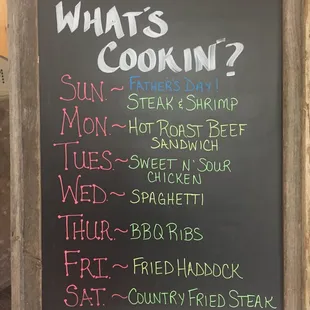 WHAT'S
COOKIN'?
SUN.~ FATHER'S DAY!
STEAK & SHRIMP
MON.~ HOT ROAST BEEF
SANDWICH
TUES~ SWEET N' SOUR
CHICKEN
WED~ SPAGHETTI
THUR.~ BBQ RIBS
FRI.~ FRIED HADDOCK
SAT.~ COUNTRY FRIED STEAK